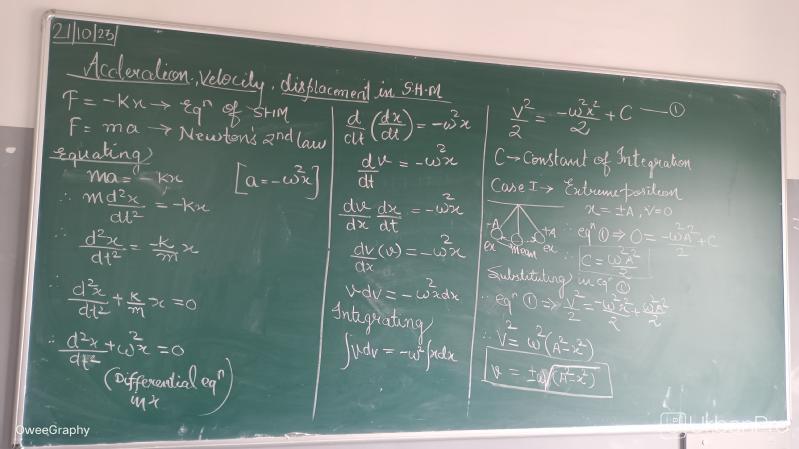 21/10/23
Acceleration, Velocity, displacement in S.H.M
F = -Kx → Eqⁿ of SHM
F = ma → Newton's 2nd law
Equating
ma = -kx [a = -ω²x]
∴ m d²x/dt² = -Kx
∴ d²x/dt² = -k/m x
∴ d²x/dt² + k/m x = 0
∴ d²x/dt² + ω²x = 0
(Differential eqⁿ)
d/dt (dx/dt) = -ω²x
d/dt v = -ω²x
dv/dx dx/dt = -ω²x
dv/dx (v) = -ω²x
vdv = -ω²xdx
Integrating
∫vdv = -ω²∫xdx
v²/2 = -ω²x²/2 + C — ①
C → Constant of Integration
Case I → Extreme position
x = ±A, v=0
-A +A
ex mean ex
∴ eqⁿ ① ⇒ 0 = -ω²A²/2 + C
C = ω²A²/2
Substituting in eqⁿ ①
∴ eqⁿ ① ⇒ v²/2 = -ω²x²/2 + ω²A²/2
∴ V² = ω²(A²-x²)
v = ±ω√(A²-x²)
OweeGraphy
UrbanPro